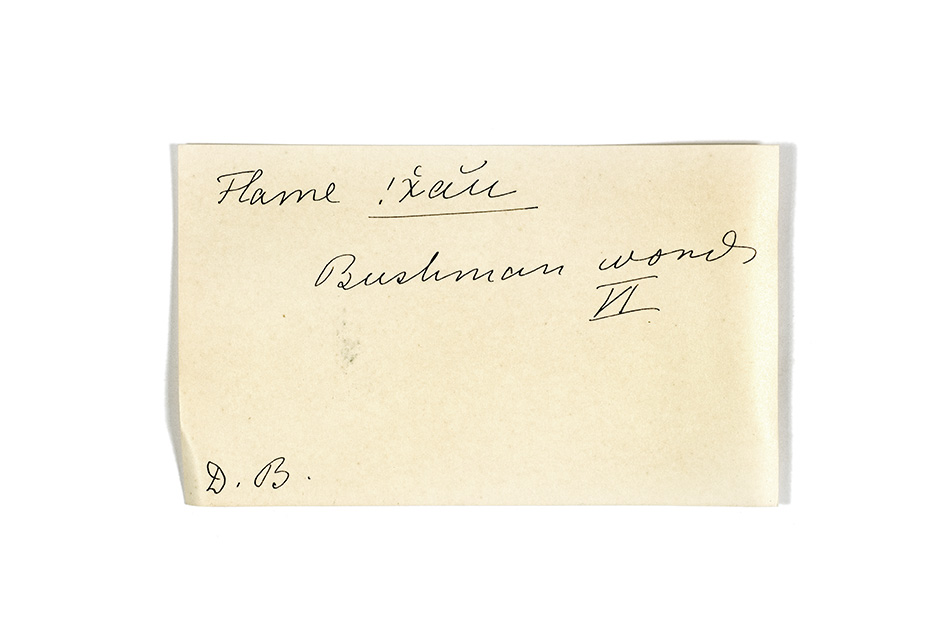 Flame !x̌ăŭ
Bushman words
VI
D. B.